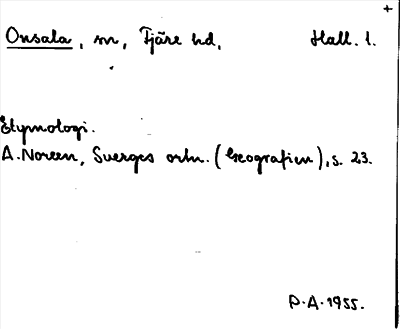 +
Onsala, sn, Fjäre hd, Hall. l.
Etymologi.
A. Noreen, Sverges ortn. (Geografien), s. 23.
P.A. 1955.